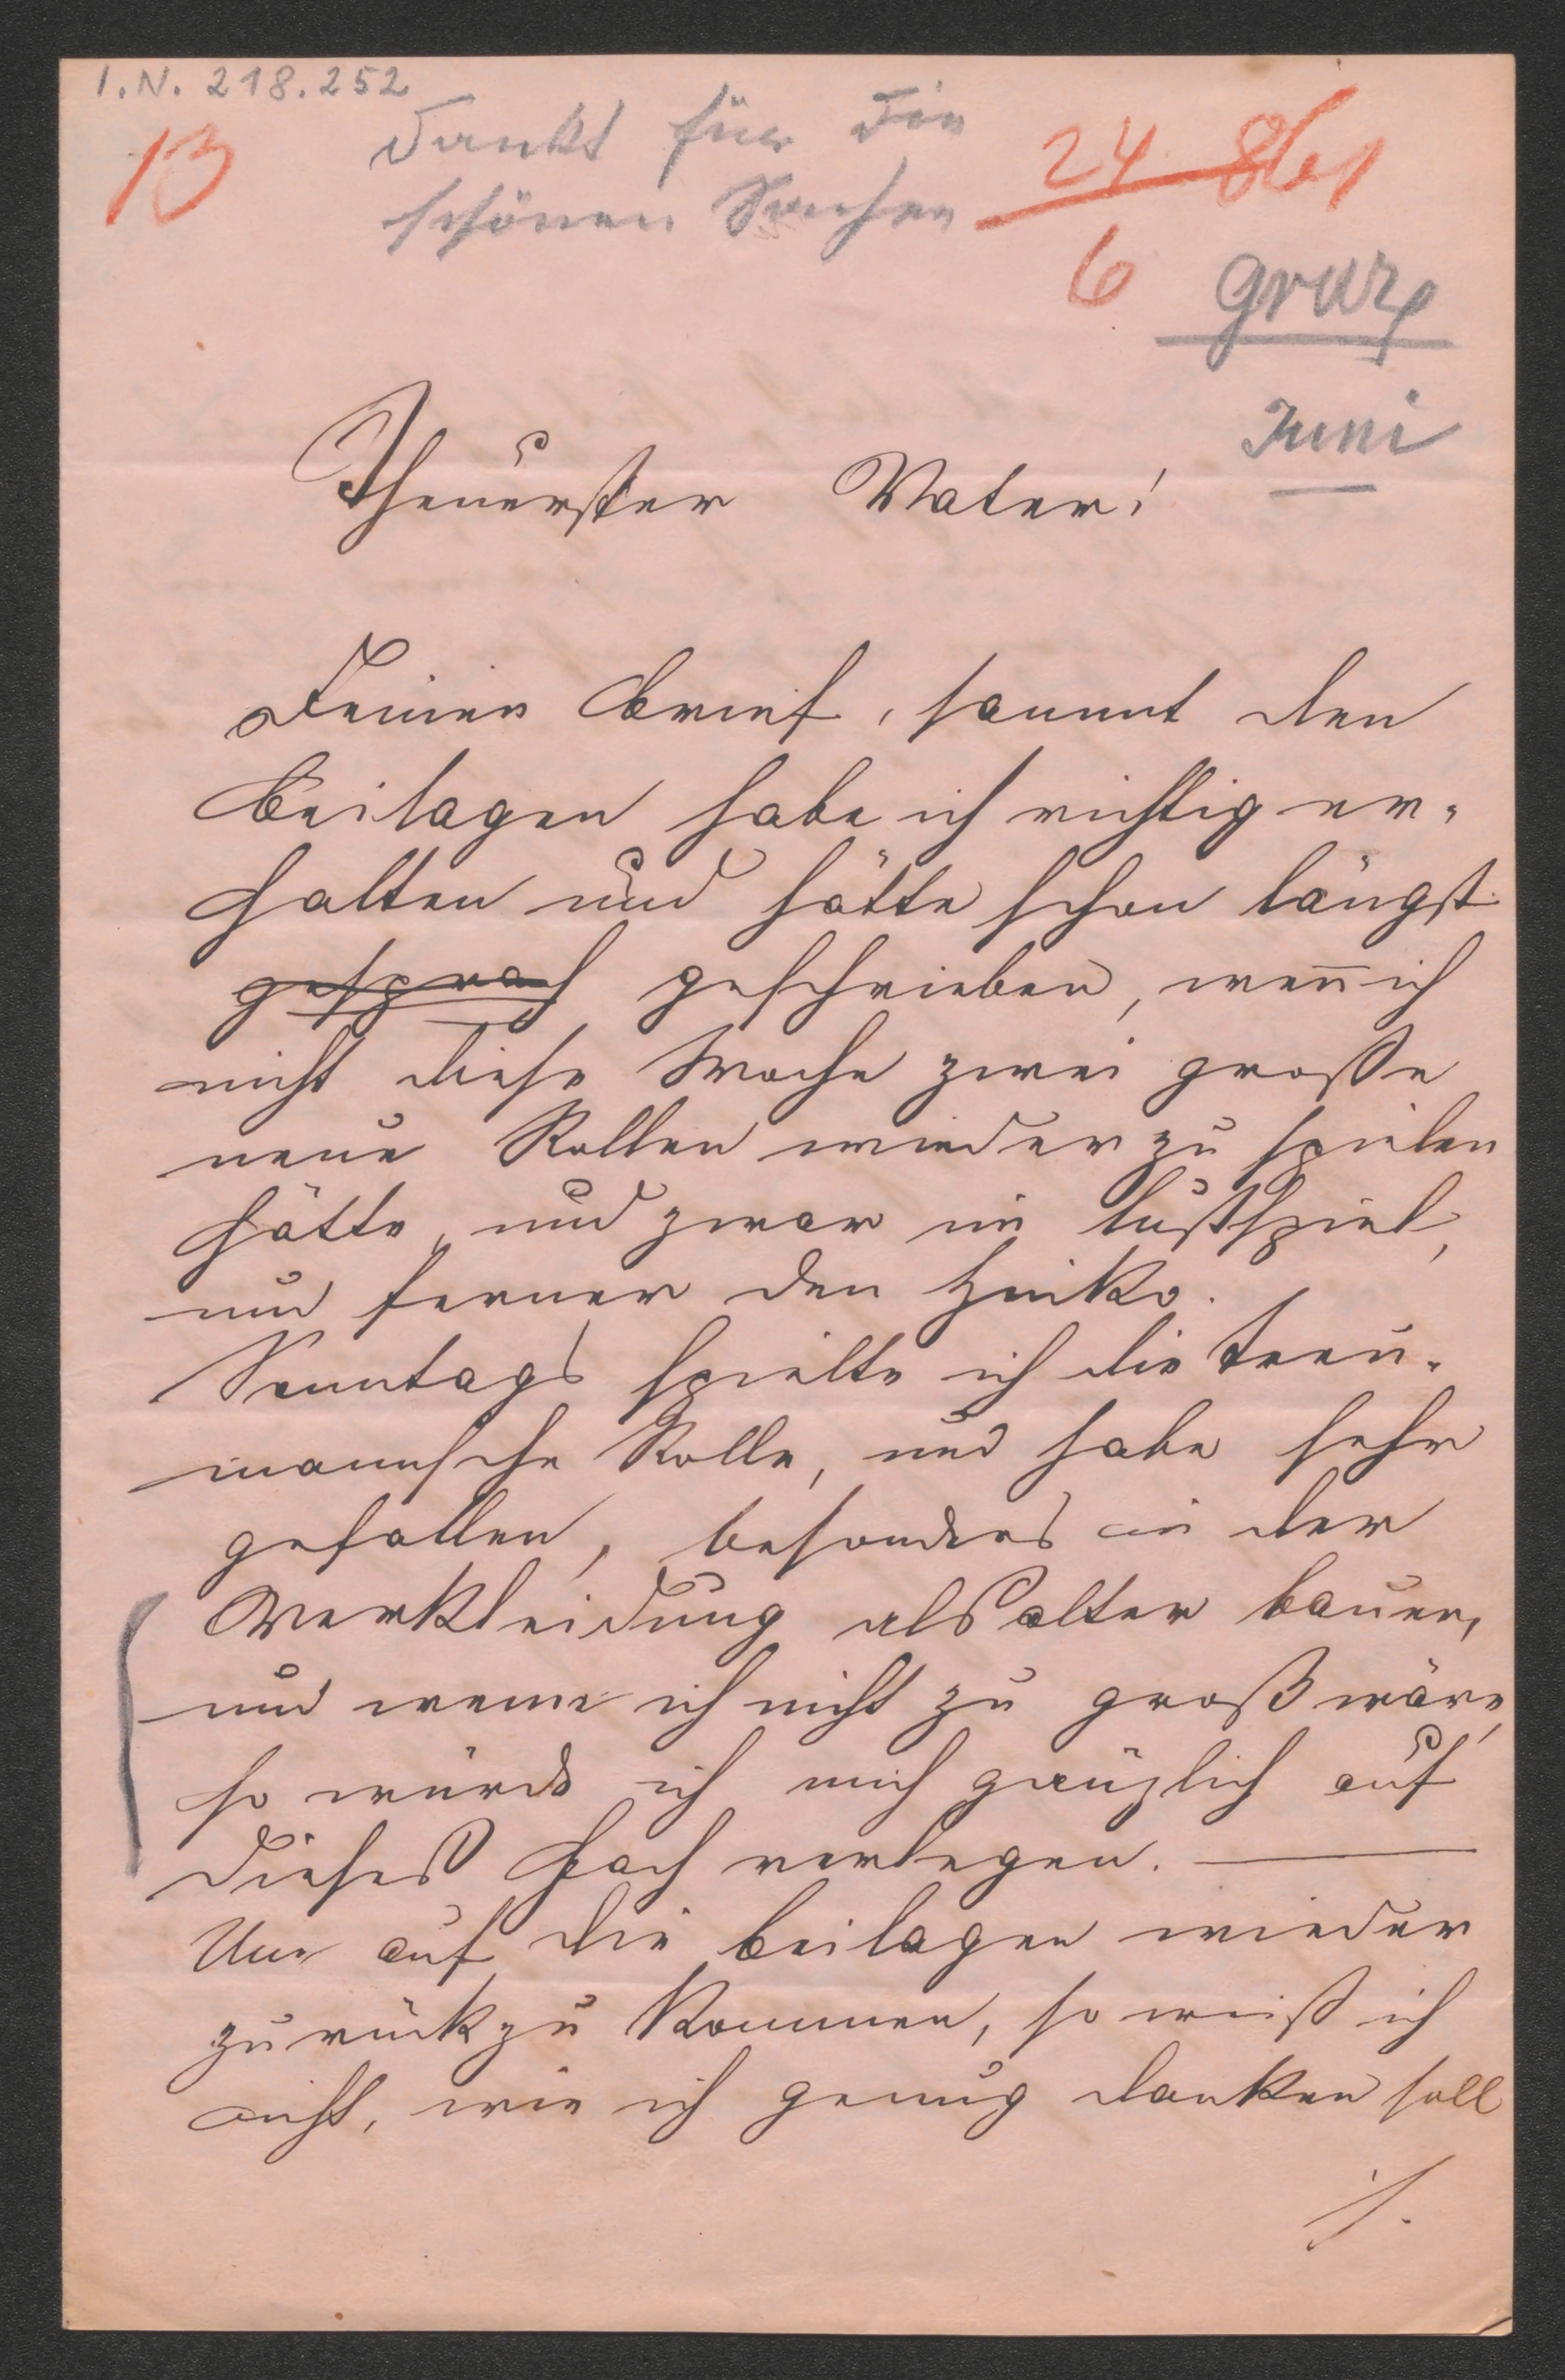 I.N. 218.252
13
Dankt für die
schönen Sachen
24 861
6
Graz
Juni
Theuerster Vater!
Deinen Brief, sammt den
Beilagen habe ich richtig er-
halten und hätte schon längst
gesprach geschrieben, wen̄ ich
nicht diese Woche zwei große
neue Rollen wieder zu spielen
hätte, und zwar im Lustspiel,
und ferner den Hinko.
Sonntags spielte ich die Treu-
mannsche Rolle, und habe sehr
gefallen, besonders in der
Verkleidung als alter Bauer,
und wenn ich nicht zu groß wäre,
so würde ich mich gänzlich auf
dieses Fach verlegen. —
Um auf die Beilagen wieder
zurückzukommen, so weiß ich
nicht, wie ich genug danken soll